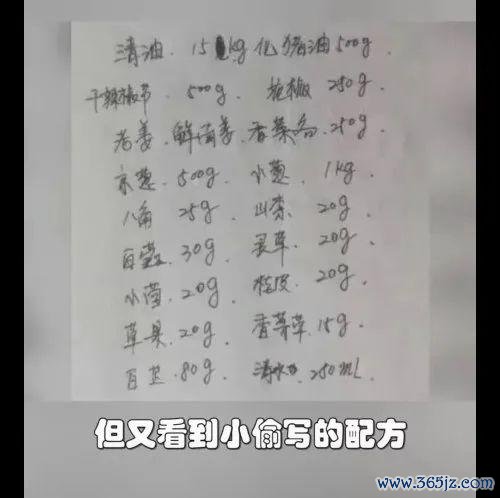 清油. 15kg 化猪油500g.
干辣椒节. 500g. 花椒 250g.
老姜. 鲜 姜. 香菜各. 250g.
京葱. 500g. 小葱. 1kg.
八角 25g. 山柰 20g.
白蔻. 30g. 灵草. 20g.
小茴. 20g. 桂皮. 20g.
草果. 20g. 香茅草. 15g.
白芷. 80g. 清水 250mL.
但又看到小偷写的配方
www.365jz.com